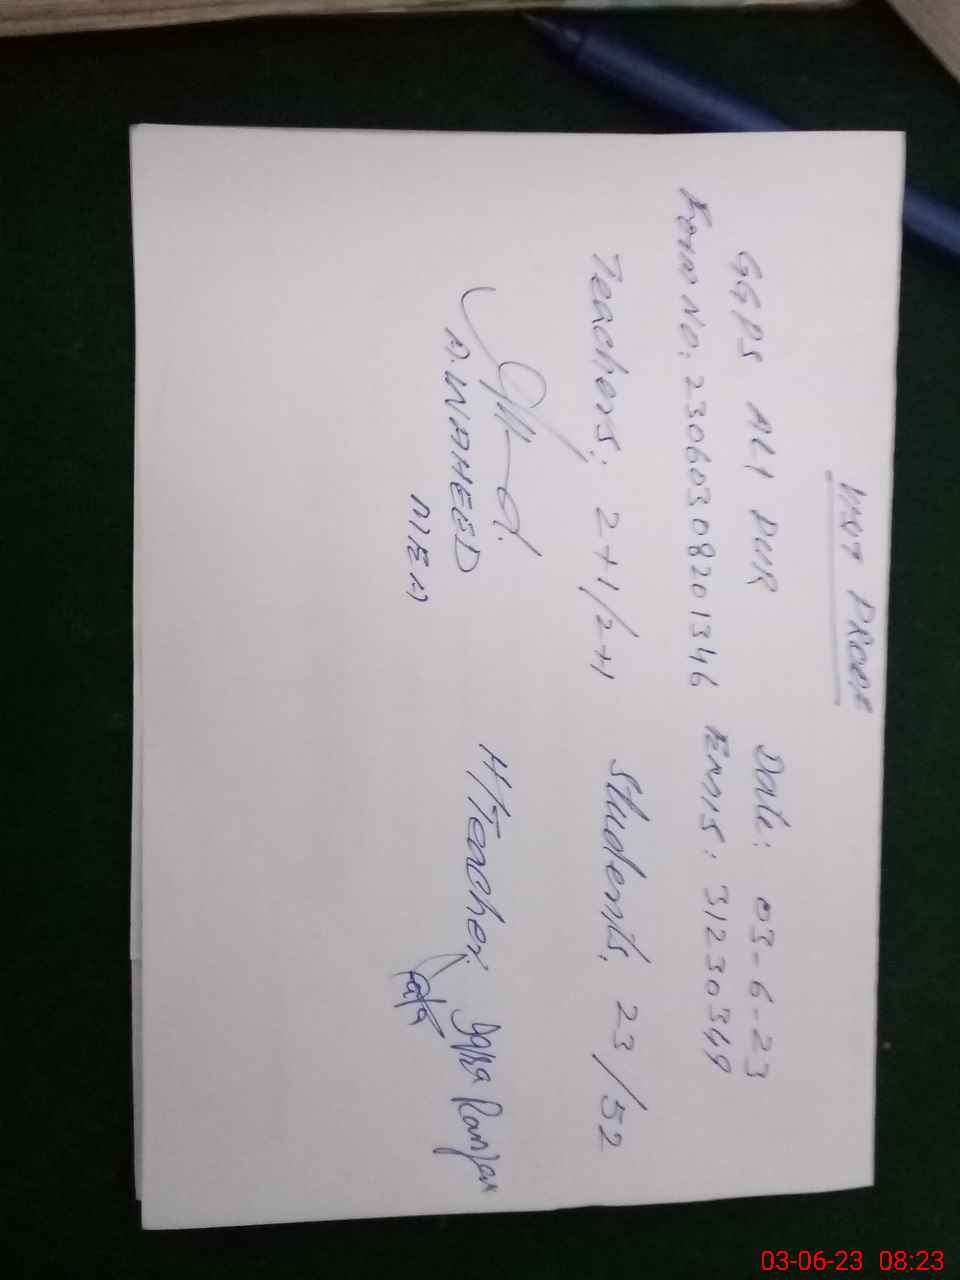 VISIT PROOF
GGPS ALI PUR Date: 03-6-23
Form No: 23060308201346 EMIS: 31230349
Teachers: 2+1/2+1 Students: 23/52
A. WAHEED H/Teacher:
MEA
03-06-23 08:23